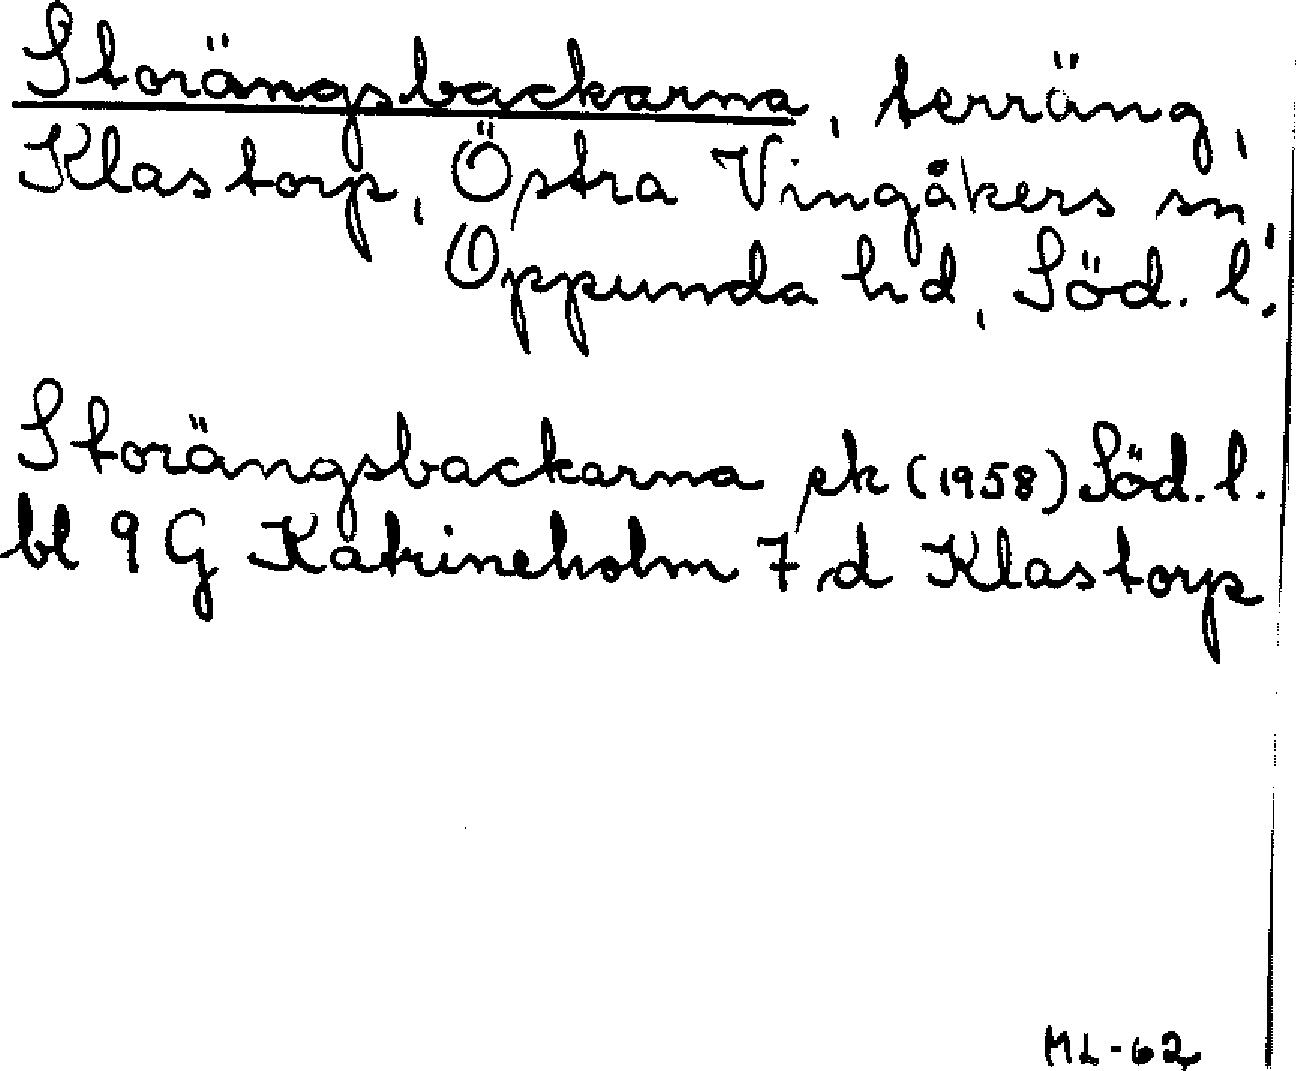 Storängsbackarna, terräng,
Klastorp, Östra Vingåkers sn,
Oppunda hd, Söd. l.
Storängsbackarna ek (1958) Söd. l.
bl 9 G Katrineholm 7 d Klastorp
ML-62